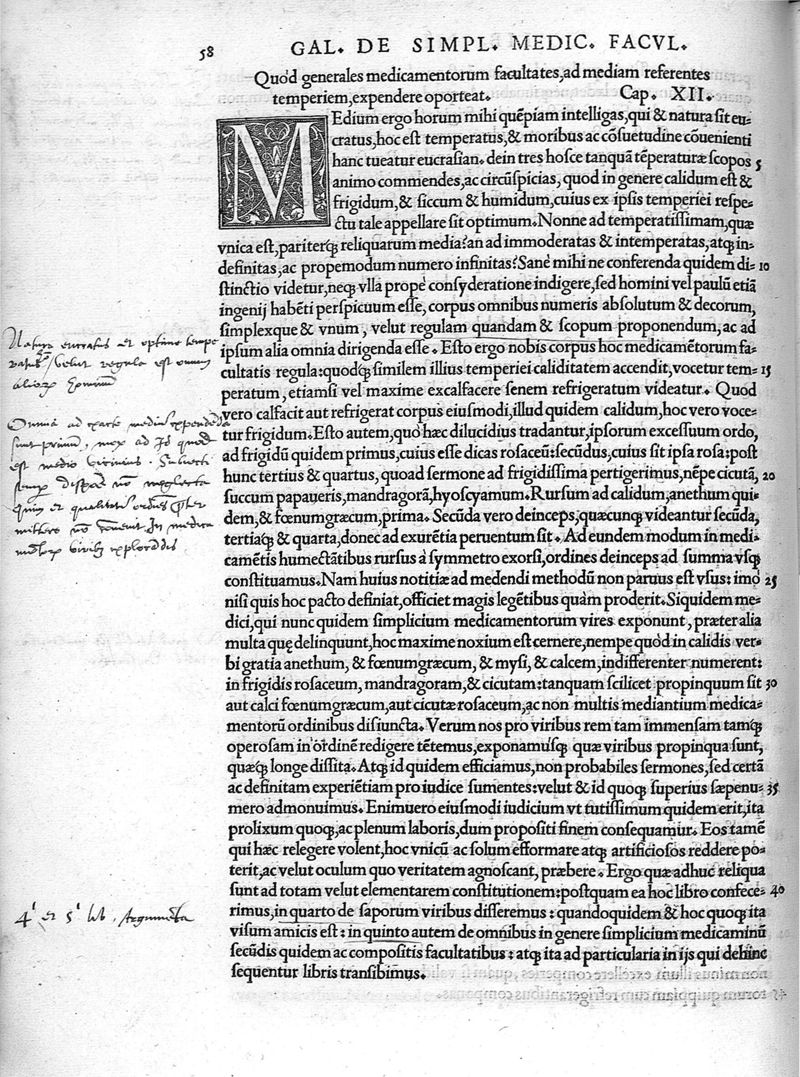 58
GAL. DE SIMPL. MEDIC. FACVL.
Quòd generales medicamentorum facultates, ad mediam referentes
temperiem, expendere oporteat. Cap. XII.
MEdium ergo horum mihi quẽpiam intelligas, qui & natura sit eu-
cratus, hoc est temperatus, & moribus ac cõsuetudine cõuenienti
hanc tueatur eucrasian. dein tres hosce tanquã tẽperaturæ scopos 5
animo commendes, ac circũspicias, quod in genere calidum est &
frigidum, & siccum & humidum, cuius ex ipsis temperiei respe-
ctu tale appellare sit optimum. Nonne ad temperatissimam, quæ
vnica est, pariterq; reliquarum media? an ad immoderatas & intemperatas, atq; in-
definitas, ac propemodum numero infinitas? Sanè mihi ne conferenda quidem di- 10
stinctio videtur, neq; vlla propè consyderatione indigere, sed homini vel paulũ etiã
ingenij habẽti perspicuum esse, corpus omnibus numeris absolutum & decorum,
simplexque & vnum, velut regulam quandam & scopum proponendum, ac ad
ipsum alia omnia dirigenda esse. Esto ergo nobis corpus hoc medicamẽtorum fa-
cultatis regula: quodq; similem illius temperiei caliditatem accendit, vocetur tem- 15
peratum, etiamsi vel maxime excalfacere senem refrigeratum videatur. Quod
vero calfacit aut refrigerat corpus eiusmodi, illud quidem calidum, hoc vero voce-
tur frigidum. Esto autem, quò hæc dilucidius tradantur, ipsorum excessuum ordo,
ad frigidũ quidem primus, cuius esse dicas rosaceũ: secũdus, cuius sit ipsa rosa: post
hunc tertius & quartus, quoad sermone ad frigidissima pertigerimus, nẽpe cicutã, 20
succum papaueris, mandragorã, hyoscyamum. Rursum ad calidum, anethum qui-
dem, & fœnumgræcum, prima. Secũda vero deinceps, quæcunq; videantur secũda,
tertiaq; & quarta, donec ad exurẽtia peruentum sit. Ad eundem modum in medi-
camẽtis humectãtibus rursus à symmetro exorsi, ordines deinceps ad summa vsq;
constituamus. Nam huius notitiæ ad medendi methodũ non paruus est vsus: imò 25
nisi quis hoc pacto definiat, officiet magis legẽtibus quàm proderit. Siquidem me-
dici, qui nunc quidem simplicium medicamentorum vires exponunt, præter alia
multa quę delinquunt, hoc maxime noxium est cernere, nempe quòd in calidis ver-
bi gratia anethum, & fœnumgræcum, & mysi, & calcem, indifferenter numerent:
in frigidis rosaceum, mandragoram, & cicutam: tanquam scilicet propinquum sit 30
aut calci fœnumgræcum, aut cicutæ rosaceum, ac non multis mediantium medica-
mentorũ ordinibus disiuncta. Verum nos pro viribus rem tam immensam tamq;
operosam in ordinẽ redigere tẽtemus, exponamusq; quæ viribus propinqua sunt,
quæq; longe dissita. Atq; id quidem efficiamus, non probabiles sermones, sed certã
ac definitam experiẽtiam pro iudice sumentes: velut & id quoq; superius sæpenu- 35
mero admonuimus. Enimuero eiusmodi iudicium vt tutissimum quidem erit, ita
prolixum quoq;, ac plenum laboris, dum propositi finem consequamur. Eos tamẽ
qui hæc relegere volent, hoc vnicũ ac solum efformare atq; artificiosos reddere po-
terit, ac velut oculum quo veritatem agnoscant, præbere. Ergo quæ adhuc reliqua
sunt ad totam velut elementarem constitutionem: postquam ea hoc libro confece- 40
rimus, in quarto de saporum viribus disseremus: quandoquidem & hoc quoq; ita
visum amicis est: in quinto autem de omnibus in genere simplicium medicaminũ
secũdis quidem ac compositis facultatibus: atq; ita ad particularia in ijs qui dehinc
sequentur libris transibimus.
Natura eucratus et optime tempe
ratus, velut regula est omniũ
aliorum hominũ
Omnia ad exacte mediũ expendenda
sunt primũ, mox ad id quod
est medio vicinius.
4' et 5' lib. Argumẽta